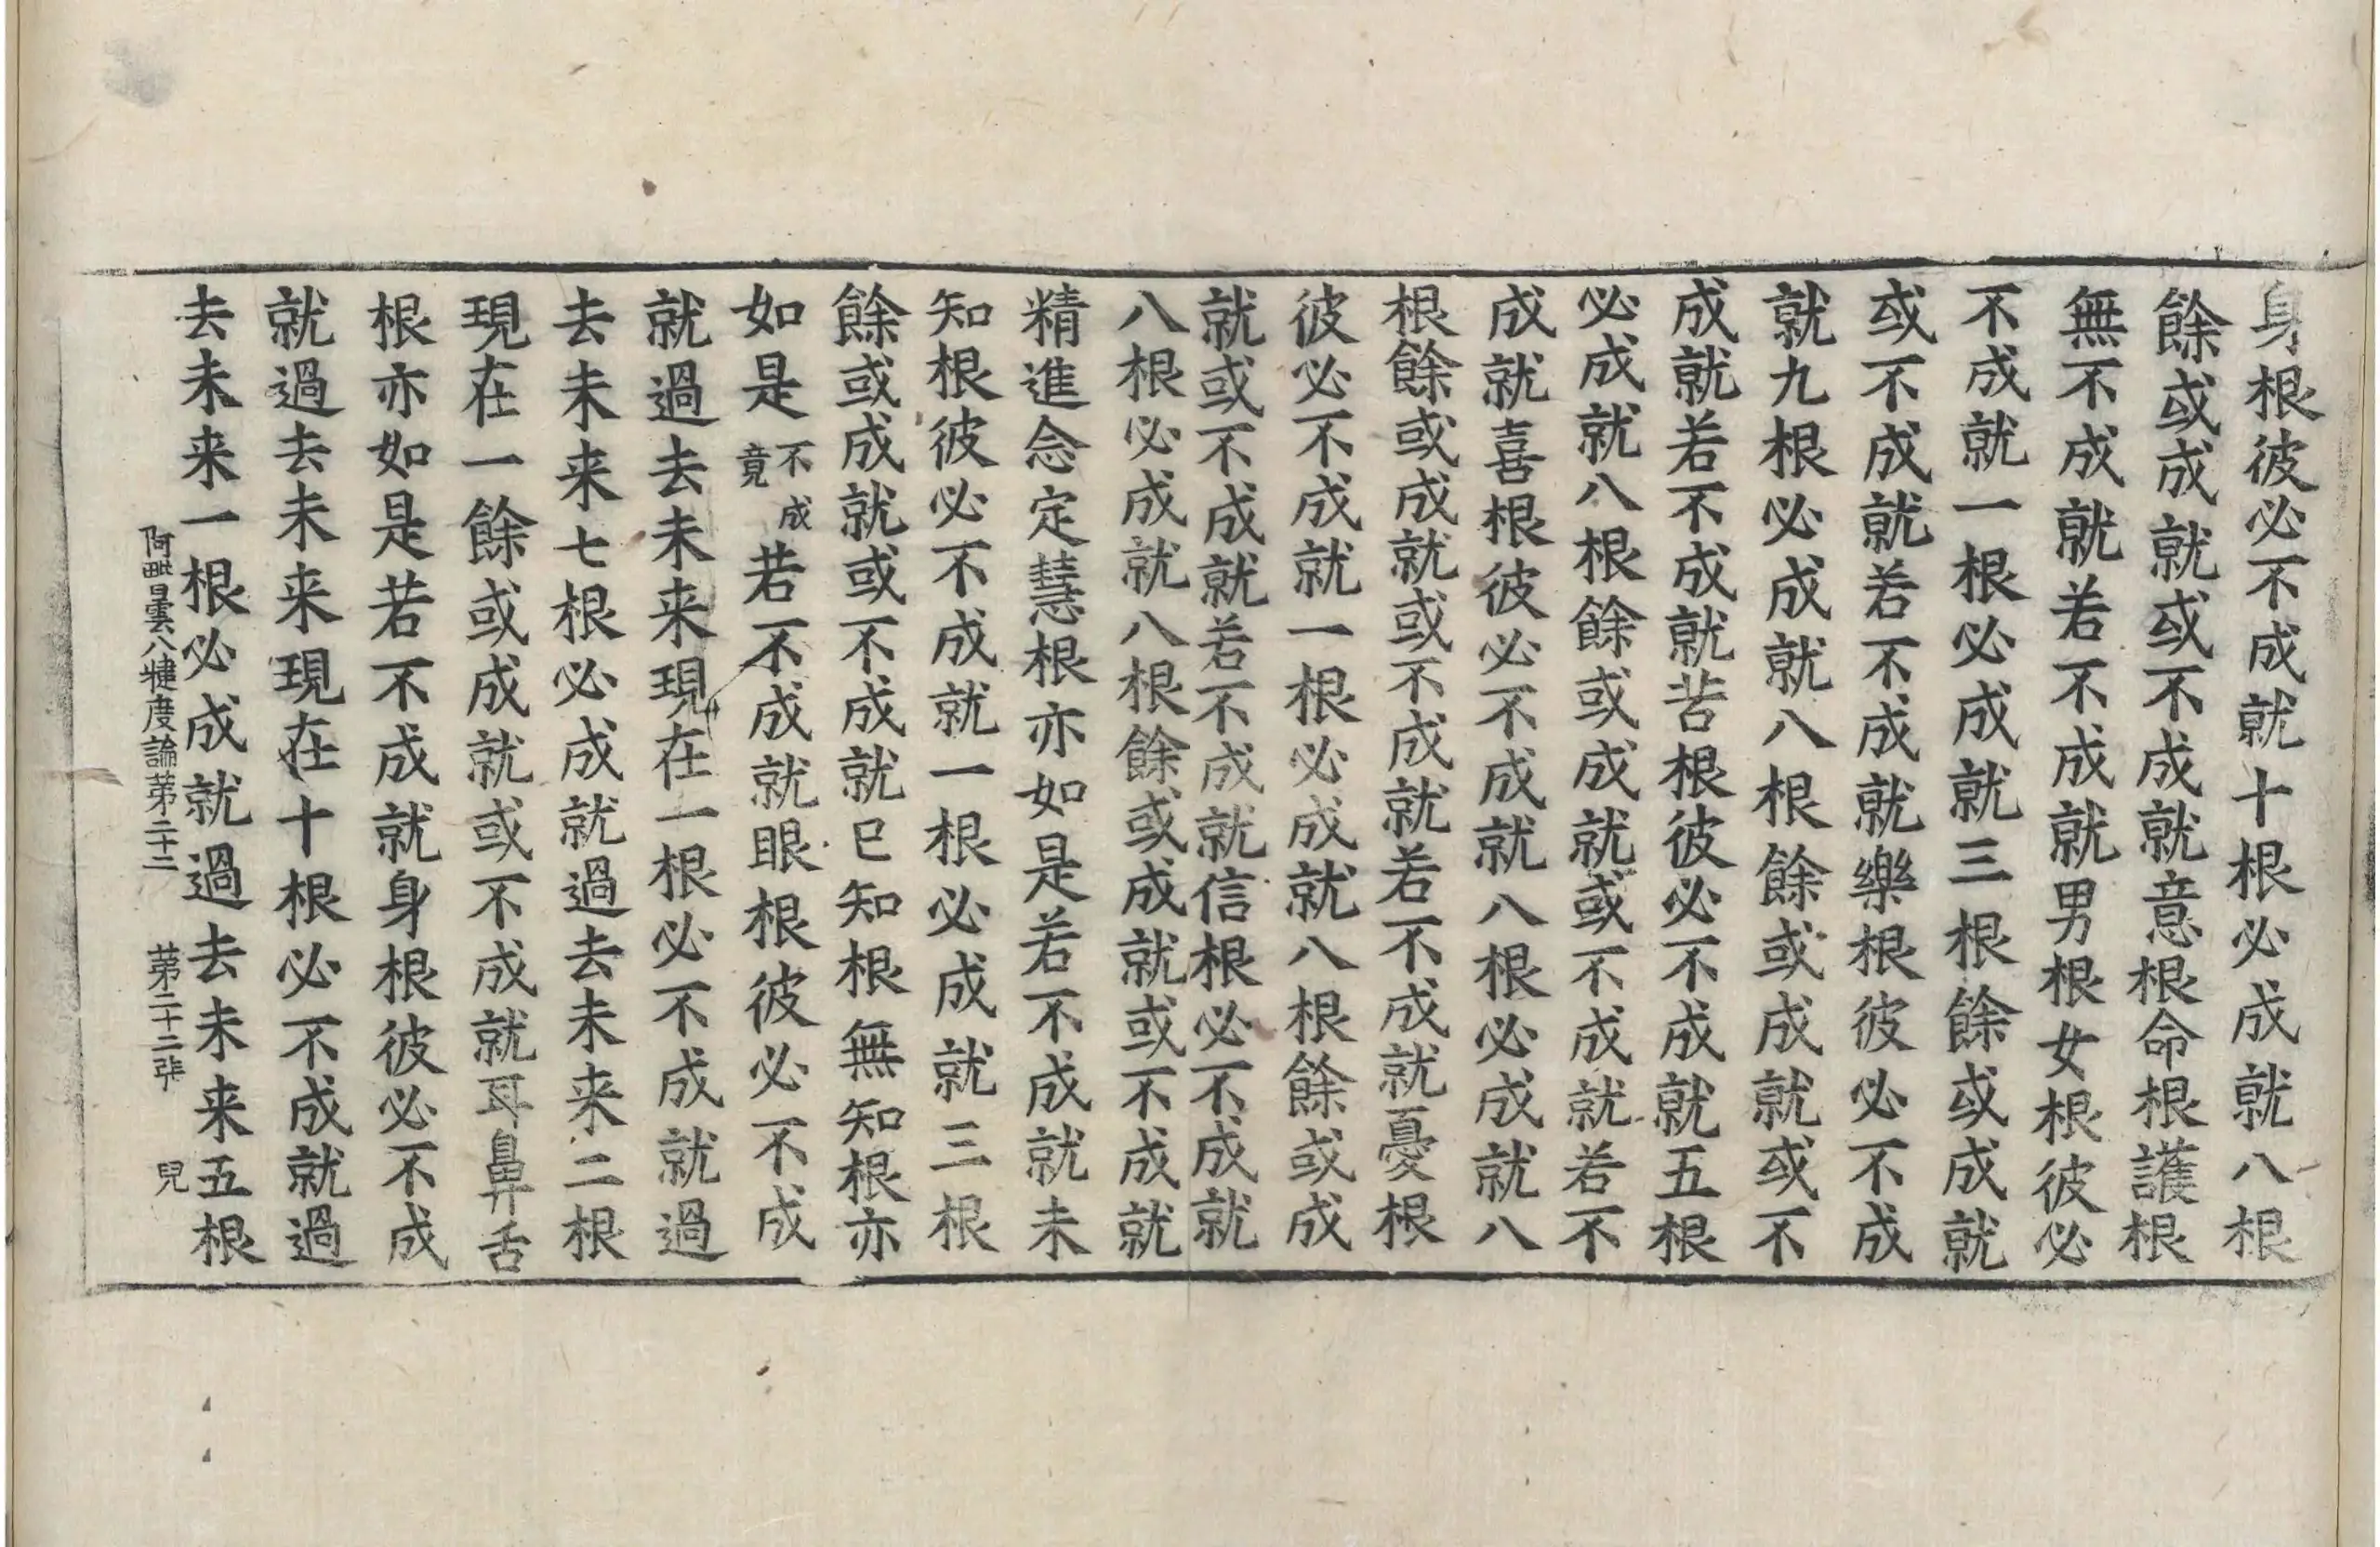 身根彼必不成就十根必成就八根
餘或成就或不成就意根命根護根
無不成就若不成就男根女根彼必
不成就一根必成就三根餘或成就
或不成就若不成就樂根彼必不成
就九根必成就八根餘或成就或不
成就若不成就苦根彼必不成就五根
必成就八根餘或成就或不成就若不
成就喜根彼必不成就八根必成就八
根餘或成就或不成就若不成就憂根
彼必不成就一根必成就八根餘或成
就或不成就若不成就信根必不成就
八根必成就八根餘或成就或不成就
精進念定慧根亦如是若不成就未
知根彼必不成就一根必成就三根
餘或成就或不成就已知根無知根亦
如是不成竟若不成就眼根彼必不成
就過去未来現在一根必不成就過
去未来七根必成就過去未来二根
現在一餘或成就或不成就耳鼻舌
根亦如是若不成就身根彼必不成
就過去未来現在十根必不成就過
去未来一根必成就過去未来五根
阿毗曇八犍度論第二十二 第二十二張 兒